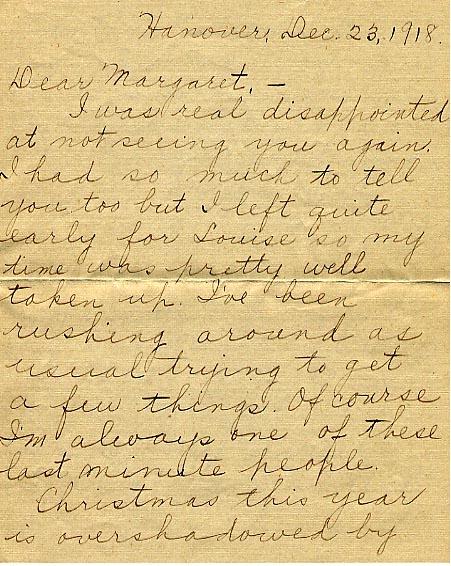 Hanover, Dec. 23, 1918.
Dear Margaret, —
I was real disappointed
at not seeing you again.
I had so much to tell
you too but I left quite
early for Louise so my
time was pretty well
taken up. I've been
rushing around as
usual trying to get
a few things. Of course
I'm always one of these
last minute people.
Christmas this year
is overshadowed by